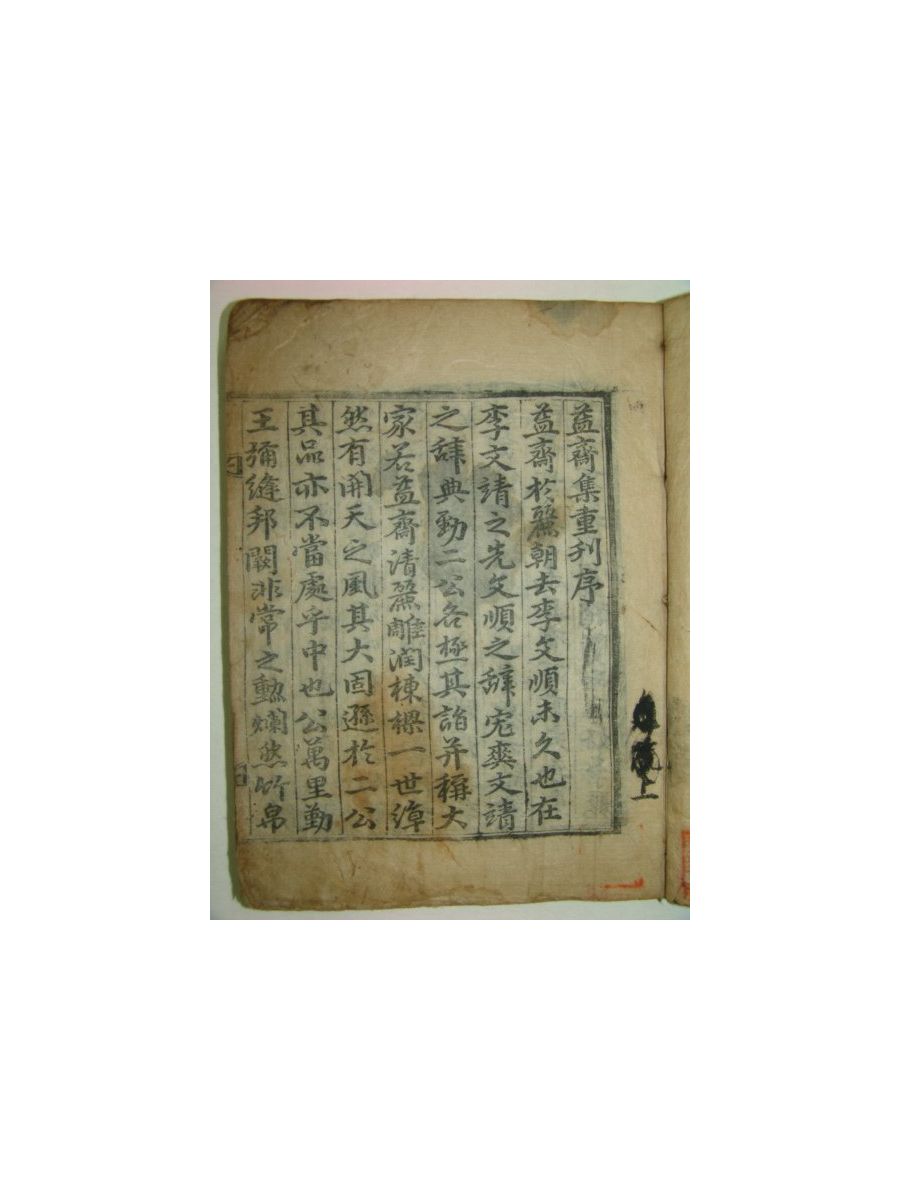 益齋集重刊序
益齋於麗朝去李文順未久也在
李文靖之先文順之辭宏爽文靖
之辭典勁二公各極其詣并稱大
家若益齋淸麗雕潤棟樑一世綽
然有開天之風其大固遜於二公
其品亦不當處乎中也公萬里勤
王彌縫邦闕非常之勳爛然竹帛
上